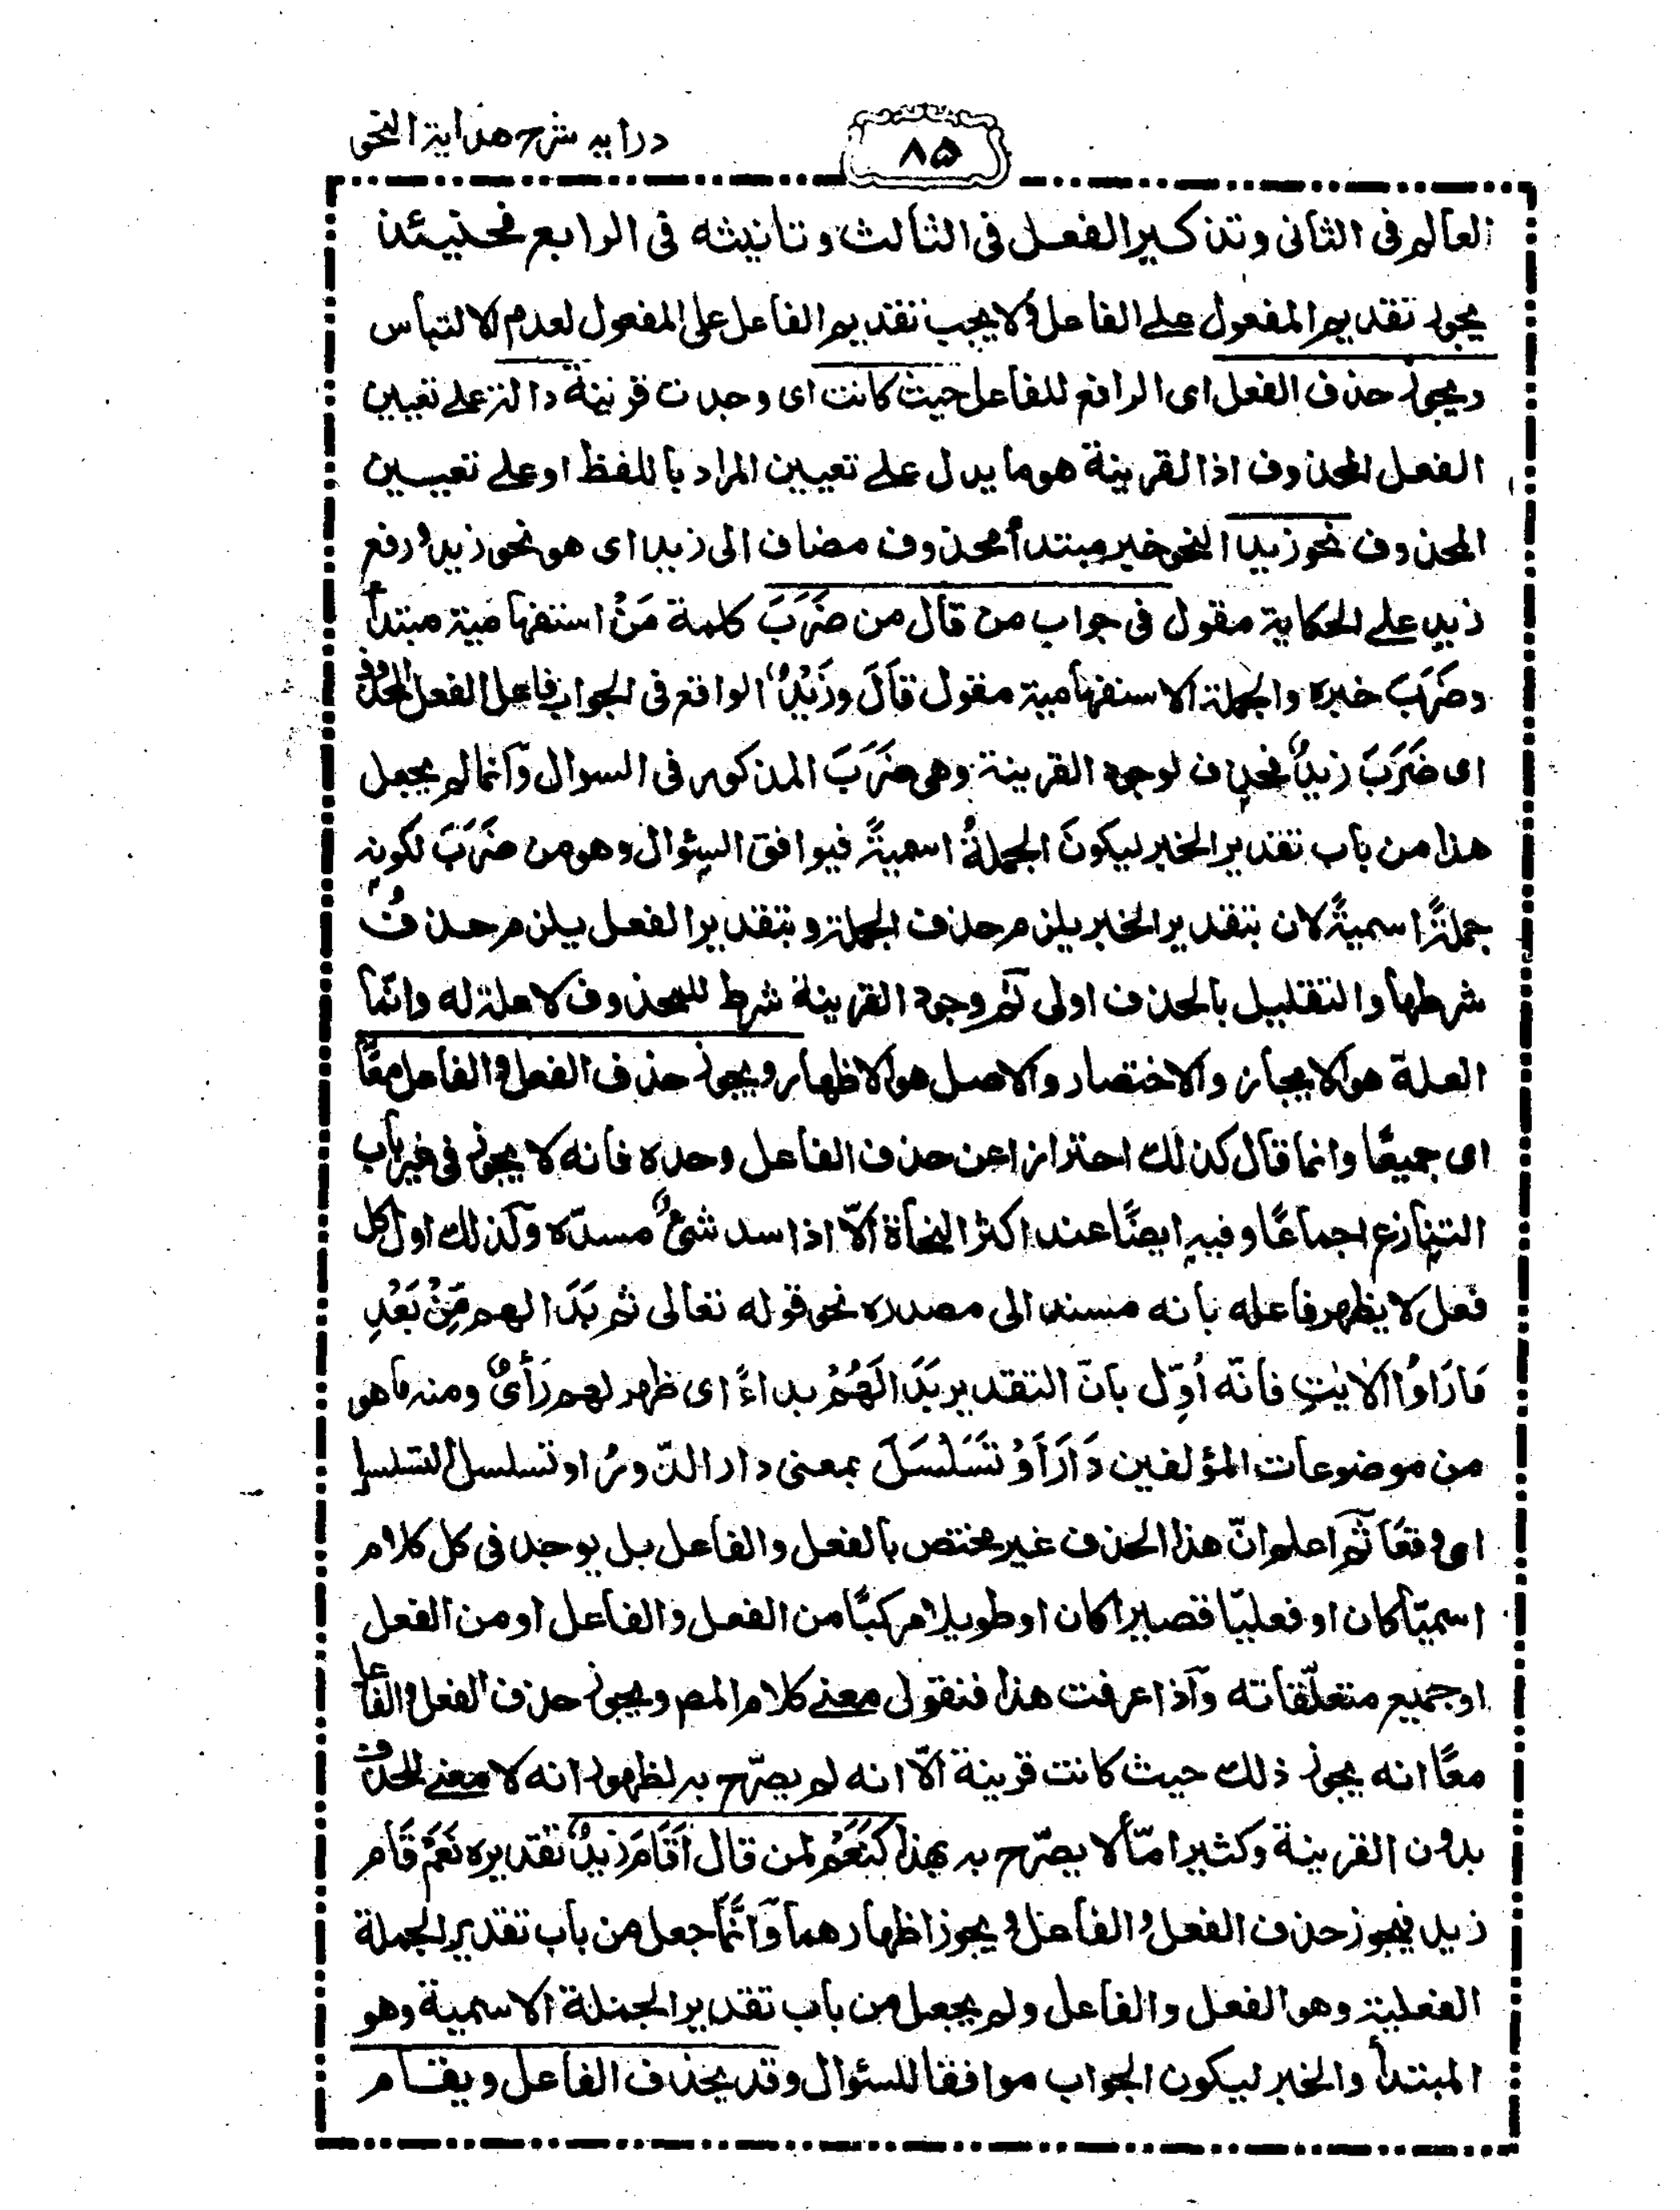 درايه شرح هداية النحو
٨٥
العالم فى الثانى وتذكير الفعل فى الثالث وتانيثه فى الرابع فحينئذ
يجوز تقديم المفعول على الفاعل ولا يجب تقديم الفاعل على المفعول لعدم الالتباس
ويجوز حذف الفعل اى الرافع للفاعل حيث كانت اى وجدت قرينة دالة على تعيين
الفعل المحذوف اذ القرينة هو ما يدل على تعيين المراد باللفظ او على تعيين
المحذوف نحو زيد النحو خبر مبتدأ محذوف مضاف الى زيد اى هو نحو زيد ورفع
زيد على الحكاية مقول فى جواب من قال من ضَرَبَ كلمة مَنْ استفهامية مبتدأ
وضَرَبَ خبره والجملة الاستفهامية مقول قَالَ وزَيْدٌ الواقع فى الجواب فاعل الفعل المحذوف
اى ضَرَبَ زيدٌ فحذف لوجود القرينة وهى ضَرَبَ المذكور فى السوال وَانما لم يجعل
هذا من باب تقدير الخبر ليكونَ الجملةُ اسميةً فيوافق السئوال وهو من ضَرَبَ لكونه
جملةً اسميةً لان بتقدير الخبر يلزم حذف الجملة وبتقدير الفعل يلزم حذفُ
شرطها والتقليل بالحذف اولى ثم وجود القرينة شرط للمحذوف لا علة له وانّما
العلة هو الايجاز والاختصار والاصل هو الاظهار ويجوز حذف الفعل والفاعل معًا
اى جميعًا وانما قال كذلك احترازا عن حذف الفاعل وحده فانه لا يجوز فى غير باب
التنازع اجماعًا وفيه ايضًا عند اكثر النحاة الّا اذا سد شئٌ مسدّه وكذلك اول كل
فعل لا يظهر فاعله بانه مسند الى مصدره نحو قوله تعالى ثم بَدَا لهم مِّنْ بَعْدِ
مَا رَاَوُا الْاٰيٰتِ فانّه اُوِّل بانّ التقدير بَدَا لَهُمْ بداءً اى ظهر لهم رَأىٌ ومنه ما هو
من موضوعات المؤلفين دَارَ اَوْ تَسَلْسَلَ بمعنى دار الدّور او تسلسل التسلسل
اى وقعًا ثم اعلم انّ هذا الحذف غير مختص بالفعل والفاعل بل يوجد فى كل كلام
اسميّا كان او فعليّا قصيرا كان او طويلا مركبًا من الفعل والفاعل او من الفعل
او جميع متعلّقاته وَاذا عرفت هذا فنقول معنى كلام المص ويجوز حذف الفعل والفاعل
معًا انه يجوز ذلك حيث كانت قرينة الّا انه لم يصرّح به لظهور انه لا معنى للحذف
بدون القرينة وكثيرا مّا لا يصرّح به بهذا كَنَعَمْ لمن قال اَقَامَ زيدٌ تقديره نَعَمْ قَام
زيد فيجوز حذف الفعل والفاعل ويجوز اظهارهما وَانَّما جعل من باب تقدير الجملة
الفعلية وهو الفعل والفاعل ولم يجعل من باب تقدير الجملة الاسمية وهو
المبتدأ والخبر ليكون الجواب موافقا للسئوال وقد يحذف الفاعل ويقام